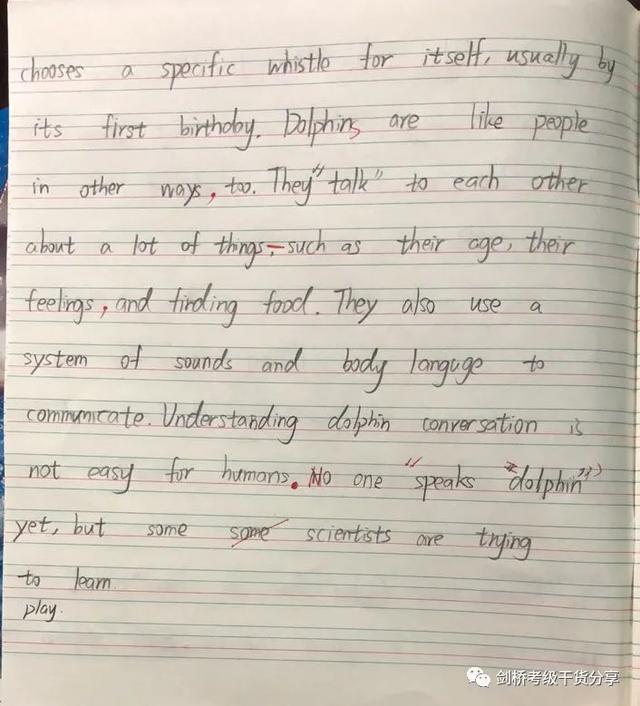 chooses a specific whistle for itself, usually by
its first birthday. Dolphins are like people
in other ways, too. They "talk" to each other
about a lot of things, such as their age, their
feelings, and finding food. They also use a
system of sounds and body languge to
communicate. Understanding dolphin conversation is
not easy for humans. No one "speaks "dolphin"
yet, but some some scientists are trying
to learn.
play.
剑桥考级干货分享